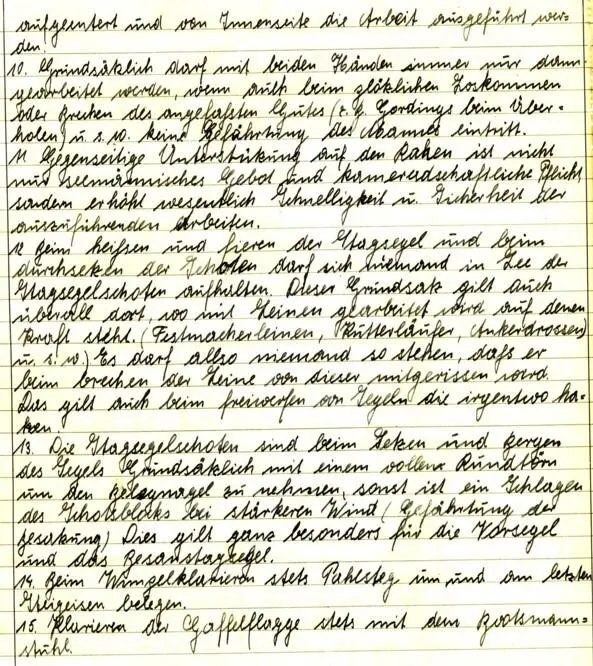 aufgeentert und von Innenseite die Arbeit ausgeführt wer=
den.
10. Grundsäklich darf mit beiden Händen immer nur dann
gearbeitet werden, wenn auch beim plöklichen Loskommen
oder Brechen des angefaßten Gutes (z. B. Gordings beim Über=
holen) u. s. w. keine Gefährtung des Mannes eintritt.
11 Gegenseitige Unterstükung auf den Rahen ist nicht
nur seemännisches Gebot und kameradschaftliche Pflicht
sondern erhöht wesentlich Schnelligkeit u. Sicherheit der
auszuführenden Arbeiten.
12 Beim heißen und fieren der Stagsegel und beim
durchseken der Schoten darf sich niemand in Lee der
Stagsegelschoten aufhalten. Dieser Grundsak gilt auch
überall dort, wo mit Leinen gearbeitet wird auf denen
Kraft steht. (Festmacherleinen, Kutterläufer, Ankerdrossen)
u. s. w.) Es darf allso niemand so stehen, daß er
beim brechen der Leine von dieser mitgerissen wird.
Das gilt auch beim freiwerfen von Segeln die irgentwo ha=
ken.
13. Die Stagsegelschoten sind beim Seken und Bergen
des Segels Grundsäklich mit einem vollene Rundtörn
um den Belegnagel zu nehmen, sonst ist ein Schlagen
des Schotblocks bei stärkeren Wind (Gefährtung der
Besakung) Dies gilt ganz besonders für die Vorsegel
und das Besanstagsegel.
14. Beim Wimpelklarieren stets Pahlsteg um und am letzten
Steigeisen belegen.
15. Klarieren der Gaffelflagge stets mit dem Bootsmann=
stuhl.